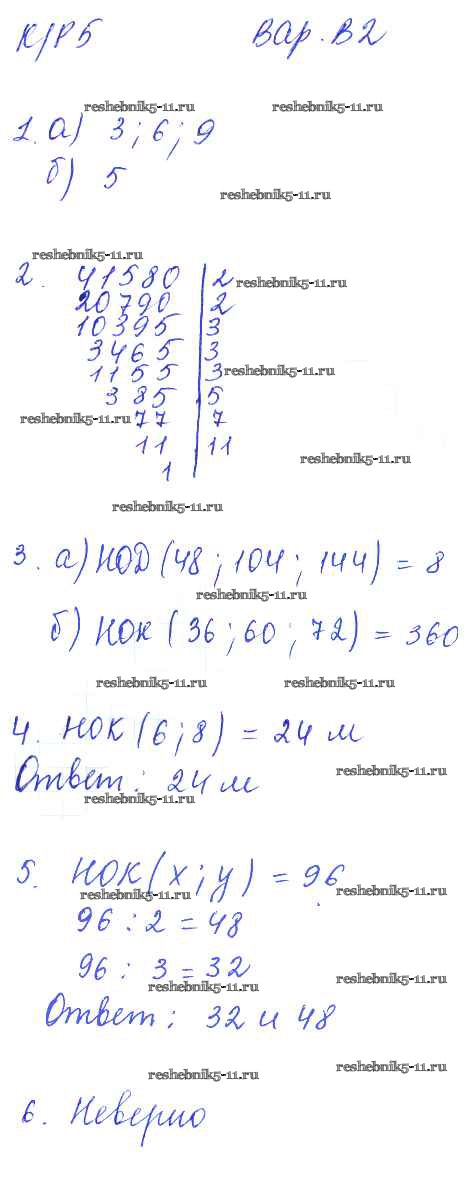 К/Р 5 Вар. В2
reshebnik5-11.ru reshebnik5-11.ru
1. а) 3; 6; 9
б) 5
reshebnik5-11.ru
reshebnik5-11.ru
2. 41580 | 2
reshebnik5-11.ru
20790 | 2
10395 | 3
3465 | 3
1155 | 3
reshebnik5-11.ru
385 | 5
reshebnik5-11.ru
77 | 7
11 | 11
reshebnik5-11.ru
1
reshebnik5-11.ru
3. а) НОД (48; 104; 144) = 8
reshebnik5-11.ru
б) НОК (36; 60; 72) = 360
reshebnik5-11.ru reshebnik5-11.ru
4. НОК (6; 8) = 24 м
reshebnik5-11.ru
Ответ: 24 м
reshebnik5-11.ru
5. НОК (х; у) = 96
reshebnik5-11.ru reshebnik5-11.ru
96 : 2 = 48
96 : 3 = 32
reshebnik5-11.ru reshebnik5-11.ru
Ответ: 32 и 48
reshebnik5-11.ru reshebnik5-11.ru
6. Неверно